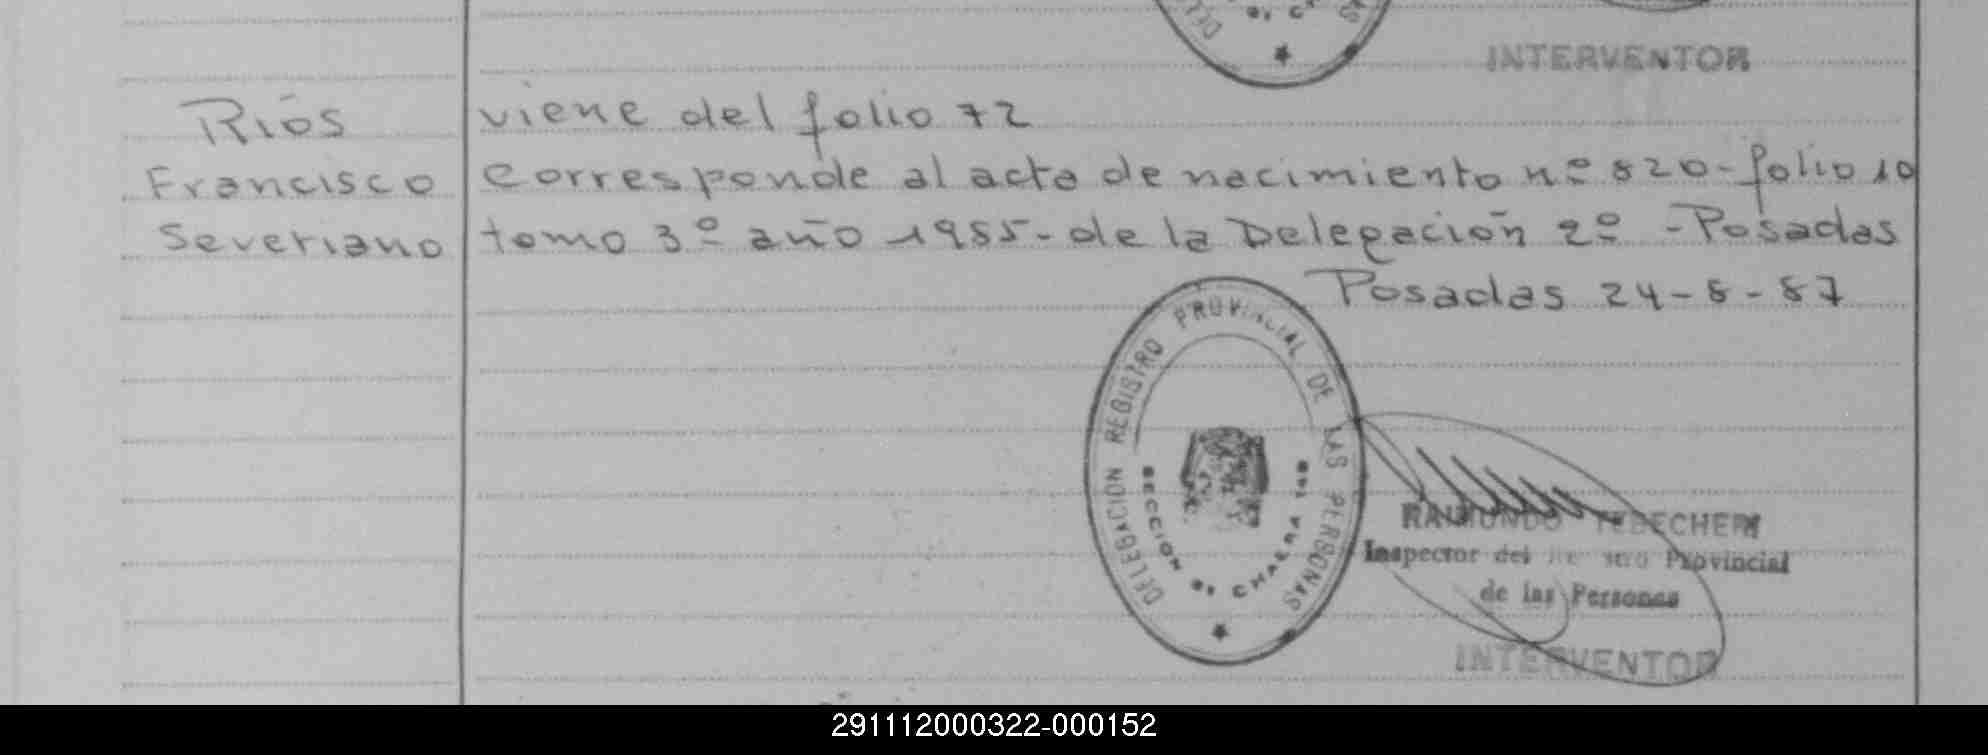 INTERVENTOR
Ríos
Francisco
Severiano
viene del folio 72
Corresponde al acta de nacimiento nº 820-folio 10
tomo 3º año 1985-de la Delegación 2º -Posadas
Posadas 24-8-87
DELEGACION REGISTRO PROVINCIAL DE LAS PERSONAS
SECCION
RAIMUNDO
Inspector del Provincial
de las Personas
INTERVENTOR
291112000322-000152